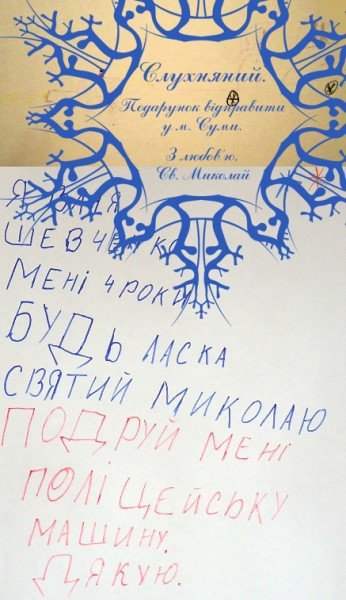 Слухняний.
Подарунок відправити
у м. Суми.
З любов'ю,
Св. Миколай
Я
ШЕВЧЕНКО
МЕНІ 4 РОКИ
БУДЬ ЛАСКА
СВЯТИЙ МИКОЛАЮ
ПОДРУЙ МЕНІ
ПОЛІЦЕЙСЬКУ
МАШИНУ.
ДЯКУЮ.